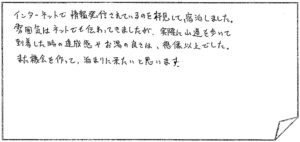 インターネットで情報発信されているのを拝見して宿泊しました。
雰囲気はネットでも伝わってきましたが、実際に山道を歩いて
到着した時の達成感やお湯の良さは、想像以上でした。
また機会を作って、泊まりに来たいと思います。